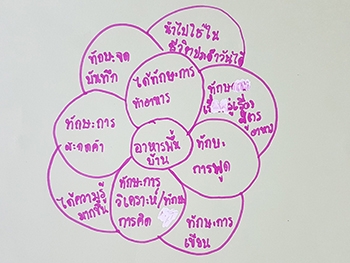 นำไปใช้ใน
ชีวิตประจำวันได้
ทักษะจด
บันทึก
ได้ทักษะการ
ทำอาหาร
ทักษะ
สูตร
อาหาร
ทักษะการ
สะกดคำ
อาหารพื้น
บ้าน
ทักษะ
การพูด
ได้ความรู้
มากขึ้น
ทักษะการ
วิเคราะห์/ทักษะ
การคิด
ทักษะการ
เขียน